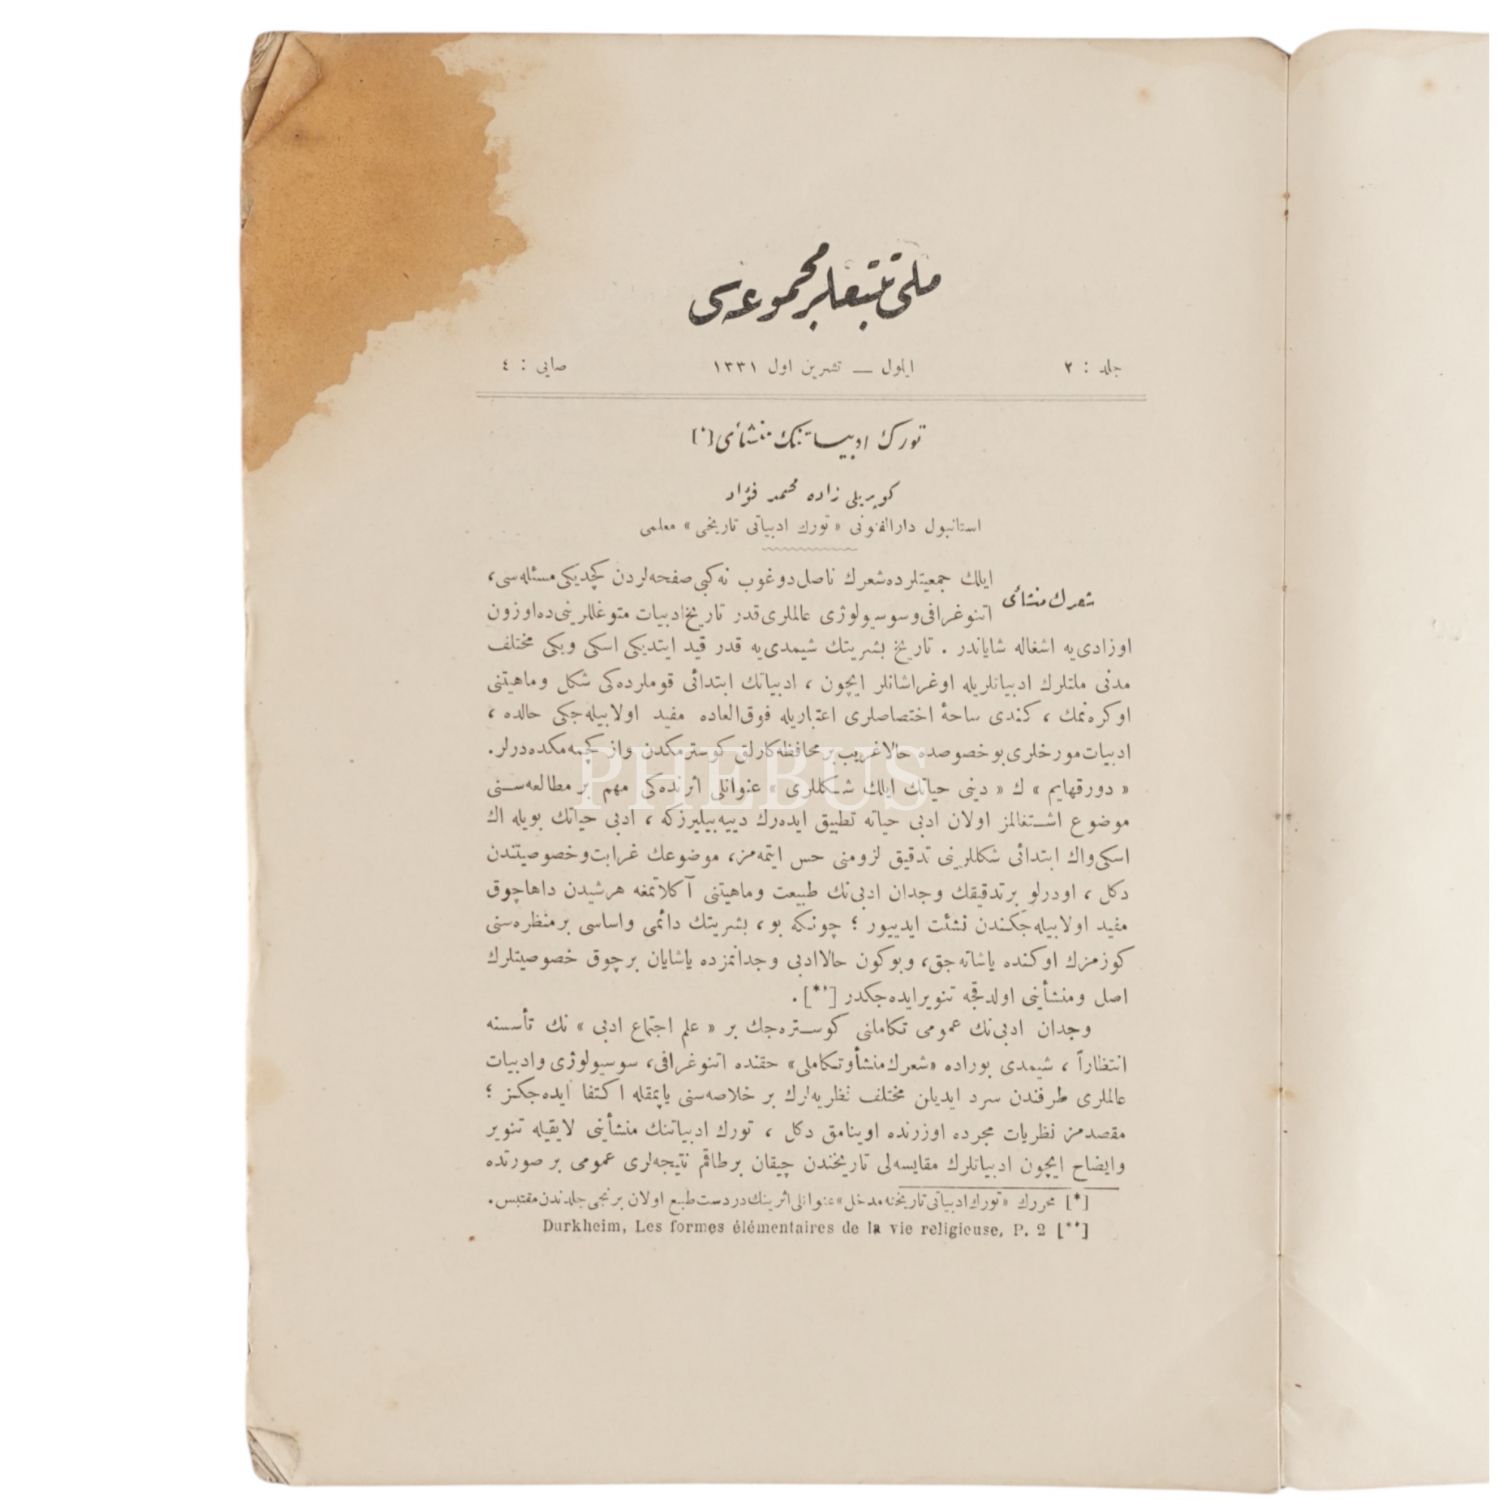 ملی تتبعلر مجموعه‌سی
جلد : ٢ ایلول — تشرین اول ١٣٣١ صایی : ٤
تورك ادبیاتنك منشأی [*]
كوپریلی زاده محمد فؤاد
استانبول دارالفنونی « تورك ادبیاتی تاریخی » معلمی
شعرك منشأی
ایلك جمعیتلرده شعرك ناصل دوغوب نه كبی صفحه‌لردن كچدیكی مسئله‌سی،
اتنوغرافی و سوسیولوژی عالملری قدر تاریخ ادبیات متوغللرینی ده اوزون
اوزادی‌یه اشغاله شایاندر . تاریخ بشریتك شیمدی‌یه قدر قید ایتدیكی اسكی ویكی مختلف
مدنی ملتلرك ادبیاتلریله اوغراشانلر ایچون ، ادبیاتك ابتدائی قوملرده‌كی شكل وماهیتنی
اوكره‌نمك ، كندی ساحهٔ اختصاصلری اعتباریله فوق‌العاده مفید اولابیله‌جكی حالده ،
ادبیات مورخلری بو خصوصده حالا غریب بر محافظه‌كارلق كوسترمكدن واز كچمه‌مكده‌درلر.
« دورقهایم » ك « دینی حیاتك ایلك شكللری » عنوانلی اثرنده‌كی مهم بر مطالعه‌سنی
موضوع اشتغالمز اولان ادبی حیاته تطبیق ایده‌رك دییه‌بیلیرزكه ، ادبی حیاتك بویله اك
اسكی واك ابتدائی شكللرینی تدقیق لزومنی حس ایتمه‌مز، موضوعك غرابت وخصوصیتندن
دكل ، اودرلو بر تدقیقك وجدان ادبی‌نك طبیعت وماهیتنی آكلاتمغه هرشیدن داها چوق
مفید اولابیله‌جكندن نشئت ایدییور ؛ چونكه بو ، بشریتك دائمی واساسی بر منظره‌سنی
كوزمزك اوكنده یاشاته‌جق، وبوكون حالا ادبی وجدانمزده یاشایان بر چوق خصوصیتلرك
اصل ومنشأینی اولدقجه تنویر ایده‌جكدر [**] .
وجدان ادبی‌نك عمومی تكاملنی كوستره‌جك بر « علم اجتماع ادبی » نك تأسسنه
انتظاراً ، شیمدی بوراده «شعرك منشأ وتكاملی» حقنده اتنوغرافی، سوسیولوژی وادبیات
عالملری طرفندن سرد ایدیلن مختلف نظریه‌لرك بر خلاصه‌سنی یاپمقله اكتفا ایده‌جكز ؛
مقصدمز نظریات مجرده اوزرنده اوینامق دكل ، تورك ادبیاتنك منشأینی لایقیله تنویر
وایضاح ایچون ادبیاتلرك مقایسه‌لی تاریخندن چیقان بر طاقم نتیجه‌لری عمومی بر صورتده
[*] محررك «تورك ادبیاتی تاریخنه مدخل» عنوانلی اثرینك دردست طبع اولان برنجی جلدندن مقتبس.
Durkheim, Les formes élémentaires de la vie religieuse, P. 2 [**]
PHEBUS